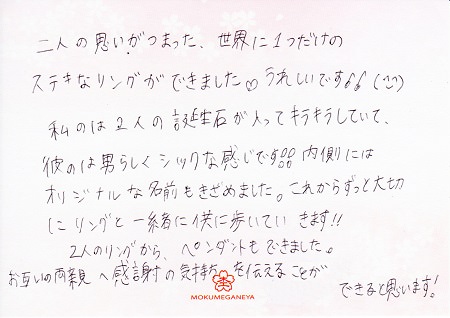 二人の思いがつまった、世界に1つだけの
ステキなリングができました♡うれしいです♪♪(^^)
私のは2人の誕生石が入ってキラキラしていて、
彼のは男らしくシックな感じです。。内側には
オリジナルな名前もきざめました。これからずっと大切
にリングと一緒に供に歩いていきます!!
2人のリングから、ペンダントもできました。
お互いの両親へ感謝の気持ちを伝えることが
できると思います!
MOKUMEGANEYA